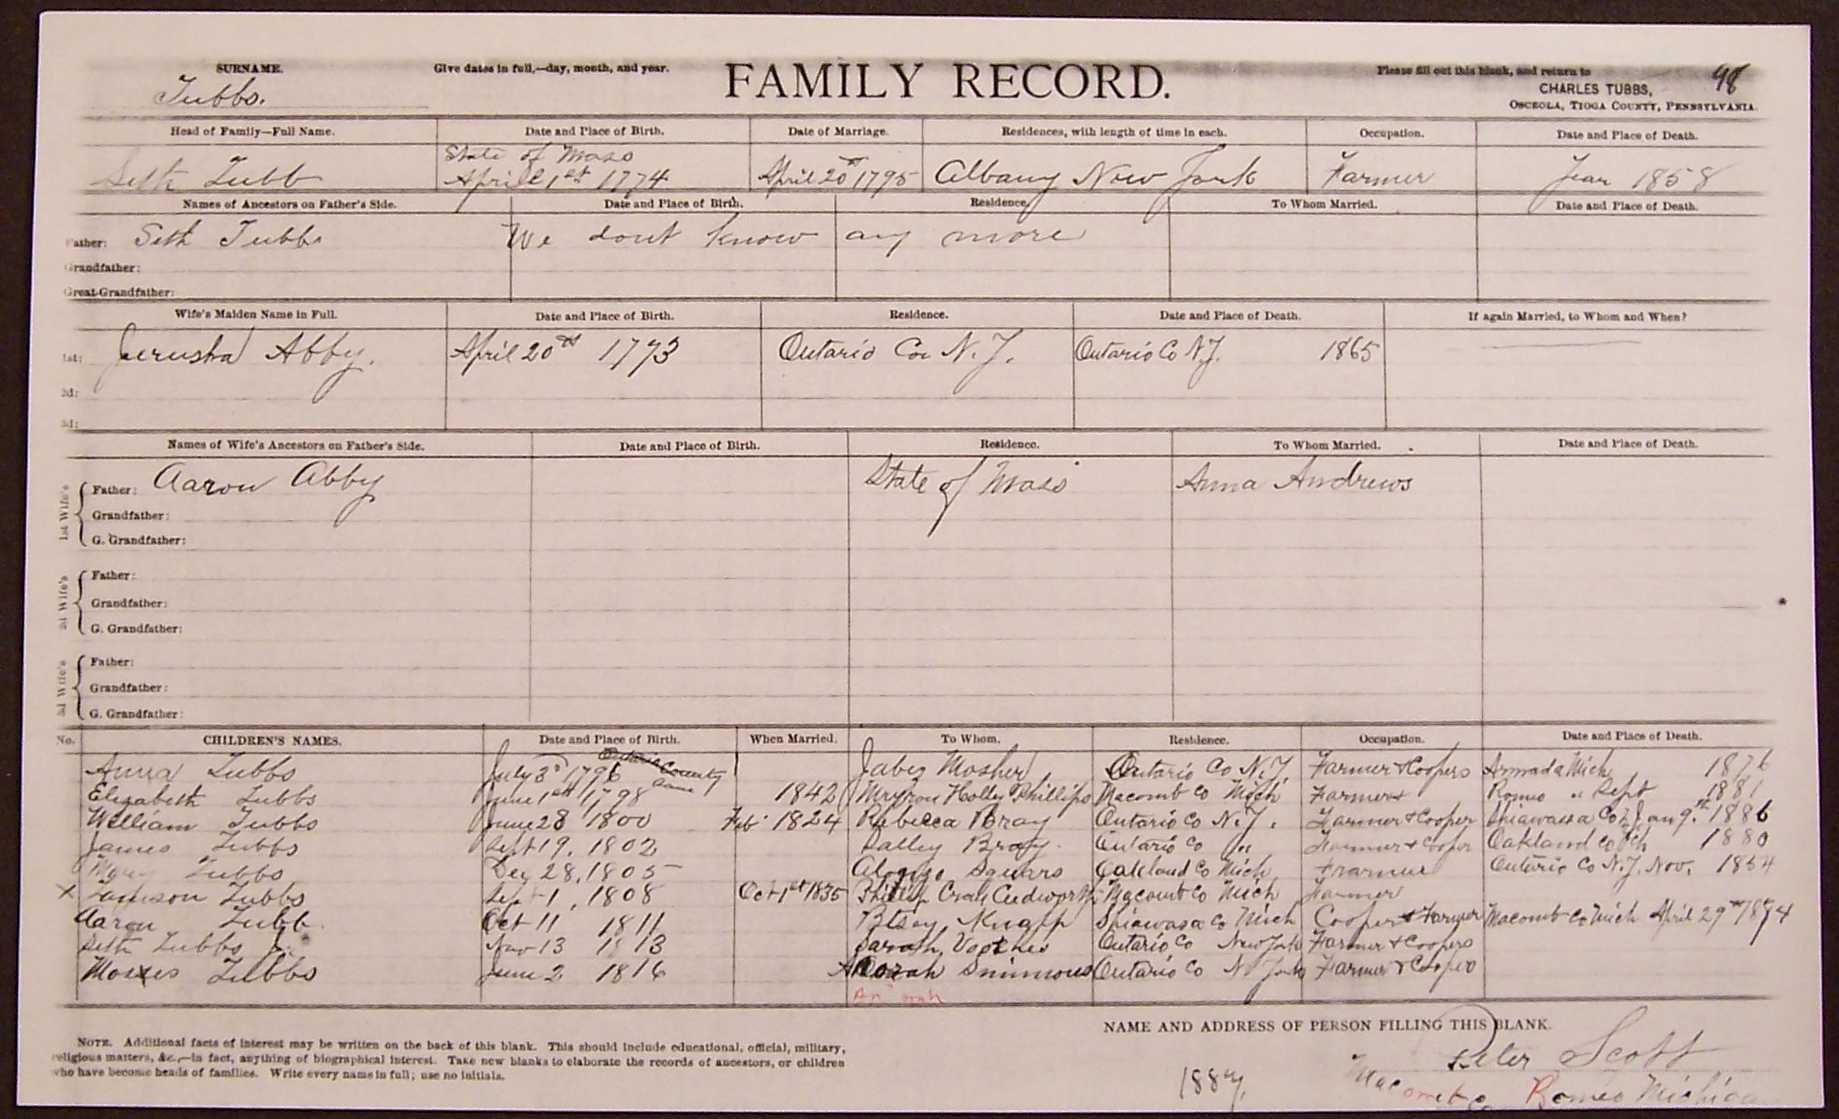 SURNAME. Give dates in full,—day, month, and year. FAMILY RECORD. Please fill out this blank, and return to 98
Tubbs. CHARLES TUBBS,
OSCEOLA, TIOGA COUNTY, PENNSYLVANIA.
Head of Family—Full Name. Date and Place of Birth. Date of Marriage. Residences, with length of time in each. Occupation. Date and Place of Death.
State of Mass
Seth Tubb April 1st 1774 April 20th 1795 Albany New York Farmer Jean 1858
Names of Ancestors on Father's Side. Date and Place of Birth. Residence. To Whom Married. Date and Place of Death.
Father: Seth Tubbs We dont know any more
Grandfather:
Great-Grandfather:
Wife's Maiden Name in Full. Date and Place of Birth. Residence. Date and Place of Death. If again Married, to Whom and When?
1st: Jerusha Abby. April 20th 1773 Ontario Co. N.Y. Ontario Co N.Y. 1865
2d:
3d:
Names of Wife's Ancestors on Father's Side. Date and Place of Birth. Residence. To Whom Married. Date and Place of Death.
1st Wife's Father: Aaron Abby State of Mass Anna Andrews
Grandfather:
G. Grandfather:
2d Wife's Father:
Grandfather:
G. Grandfather:
3d Wife's Father:
Grandfather:
G. Grandfather:
No. CHILDREN'S NAMES. Date and Place of Birth. When Married. To Whom. Residence. Occupation. Date and Place of Death.
Anna Tubbs July 3d 1796 Ontario County Jabez Mosher Ontario Co N.Y. Farmer & Coopers Armada Mich 1876
Elizabeth Tubbs June 1st 1798 same 1842 Myron Holley Phillips Macomb Co Mich Farmer Romeo " Sept 1881
William Tubbs June 28 1800 Feb 1824 Rebecca Bray Ontario Co N.Y. Farmer & Cooper Shiawassa Co Jan 9th 1886
James Tubbs Sept 19, 1802 Salley Bray Ontario Co " Farmer & Cooper Oakland co 1880
Mary Tubbs Dec 28, 1805 Alonzo Squars Oakland Co Mich Frarmer Ontario Co N.Y. Nov. 1854
x Tamson Tubbs Sept 1, 1808 Oct 1st 1835 Phillip Crak Cudworth Macomb Co Mich Farmer
Aaron Tubb Oct 11 1811 Betsy Knapp Shiawasa Co Mich Cooper & Farmer Macomb Co Mich April 29th 1874
Seth Tubbs Jr. Nov 13 1813 Sarah Ontario Co New York Farmer & Coopers
Moses Tubbs June 2 1816 Simmons Ontario Co N York Farmer & Coopers
NAME AND ADDRESS OF PERSON FILLING THIS BLANK.
NOTE. Additional facts of interest may be written on the back of this blank. This should include educational, official, military,
religious matters, &c.,—in fact, anything of biographical interest. Take new blanks to elaborate the records of ancestors, or children
who have become heads of families. Write every name in full; use no initials.
Peter Scott
1887. Macomb Co Romeo Michigan